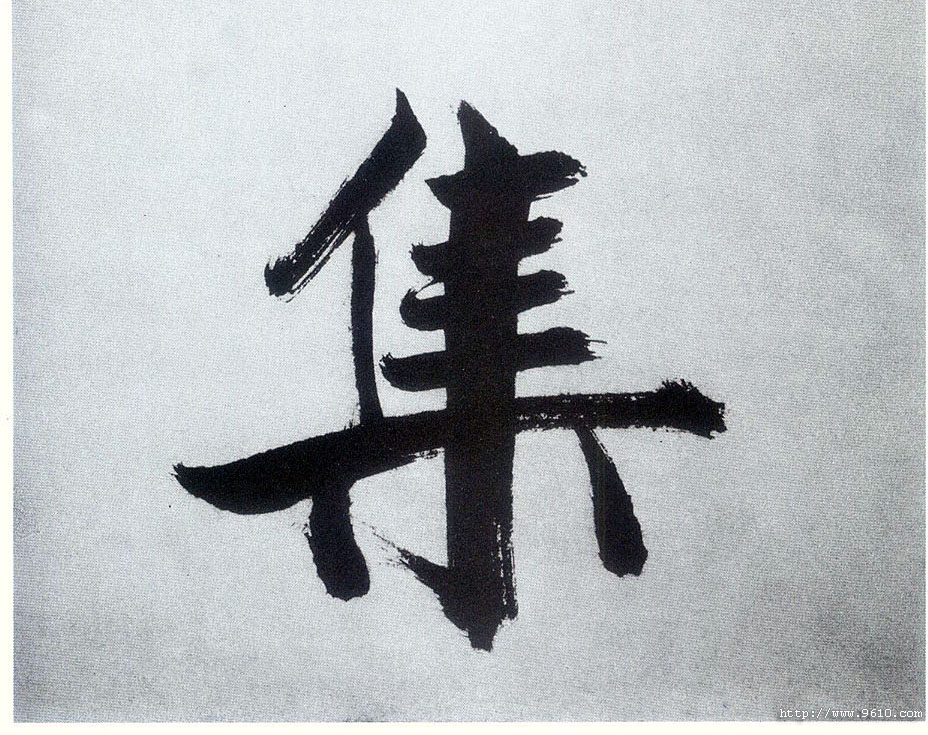 集
http://www.9610.com